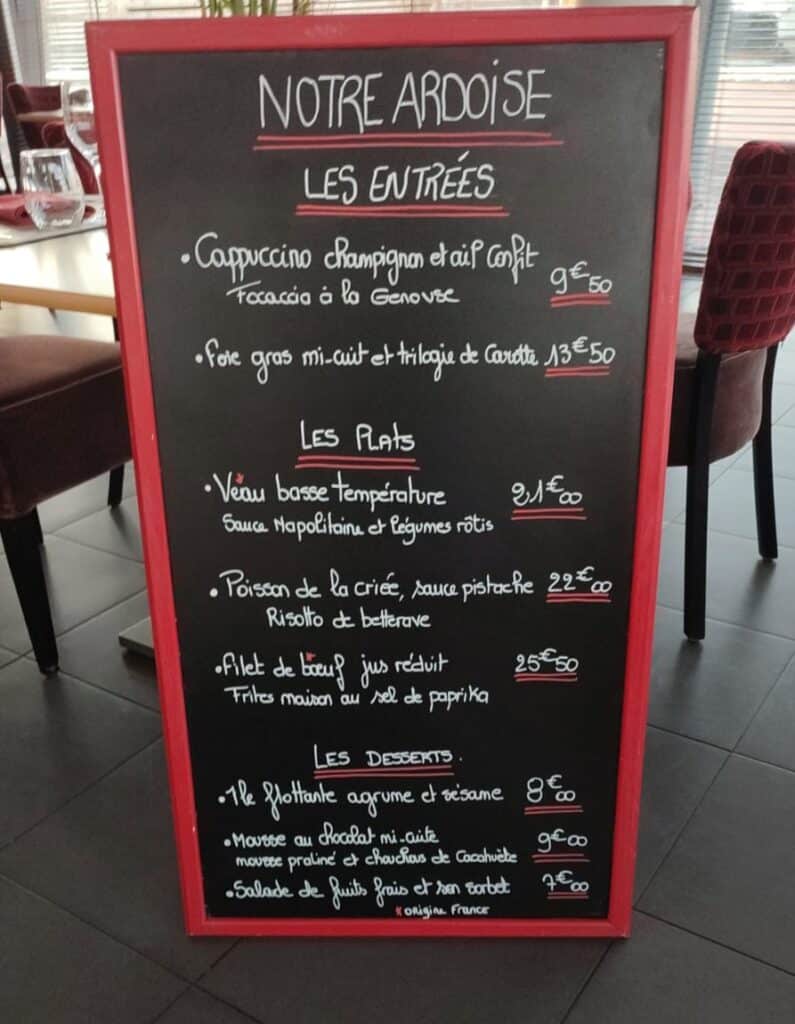 NOTRE ARDOISE
LES ENTRÉES
• Cappuccino champignon et ail confit 9€50
Focaccia à la Genovse
• Foie gras mi-cuit et trilogie de Carotte 13€50
LES PLATS
• Veau basse température 21€00
Sauce Napolitaine et légumes rôtis
• Poisson de la criée, sauce pistache 22€00
Risotto de betterave
• Filet de bœuf jus réduit 25€50
Frites maison au sel de paprika
LES DESSERTS.
• Ile flottante agrume et sésame 8€00
• Mousse au chocolat mi-cuite 9€00
mousse praliné et chouchous de Cacahuète
• Salade de fruits frais et son sorbet 7€00
* origine France